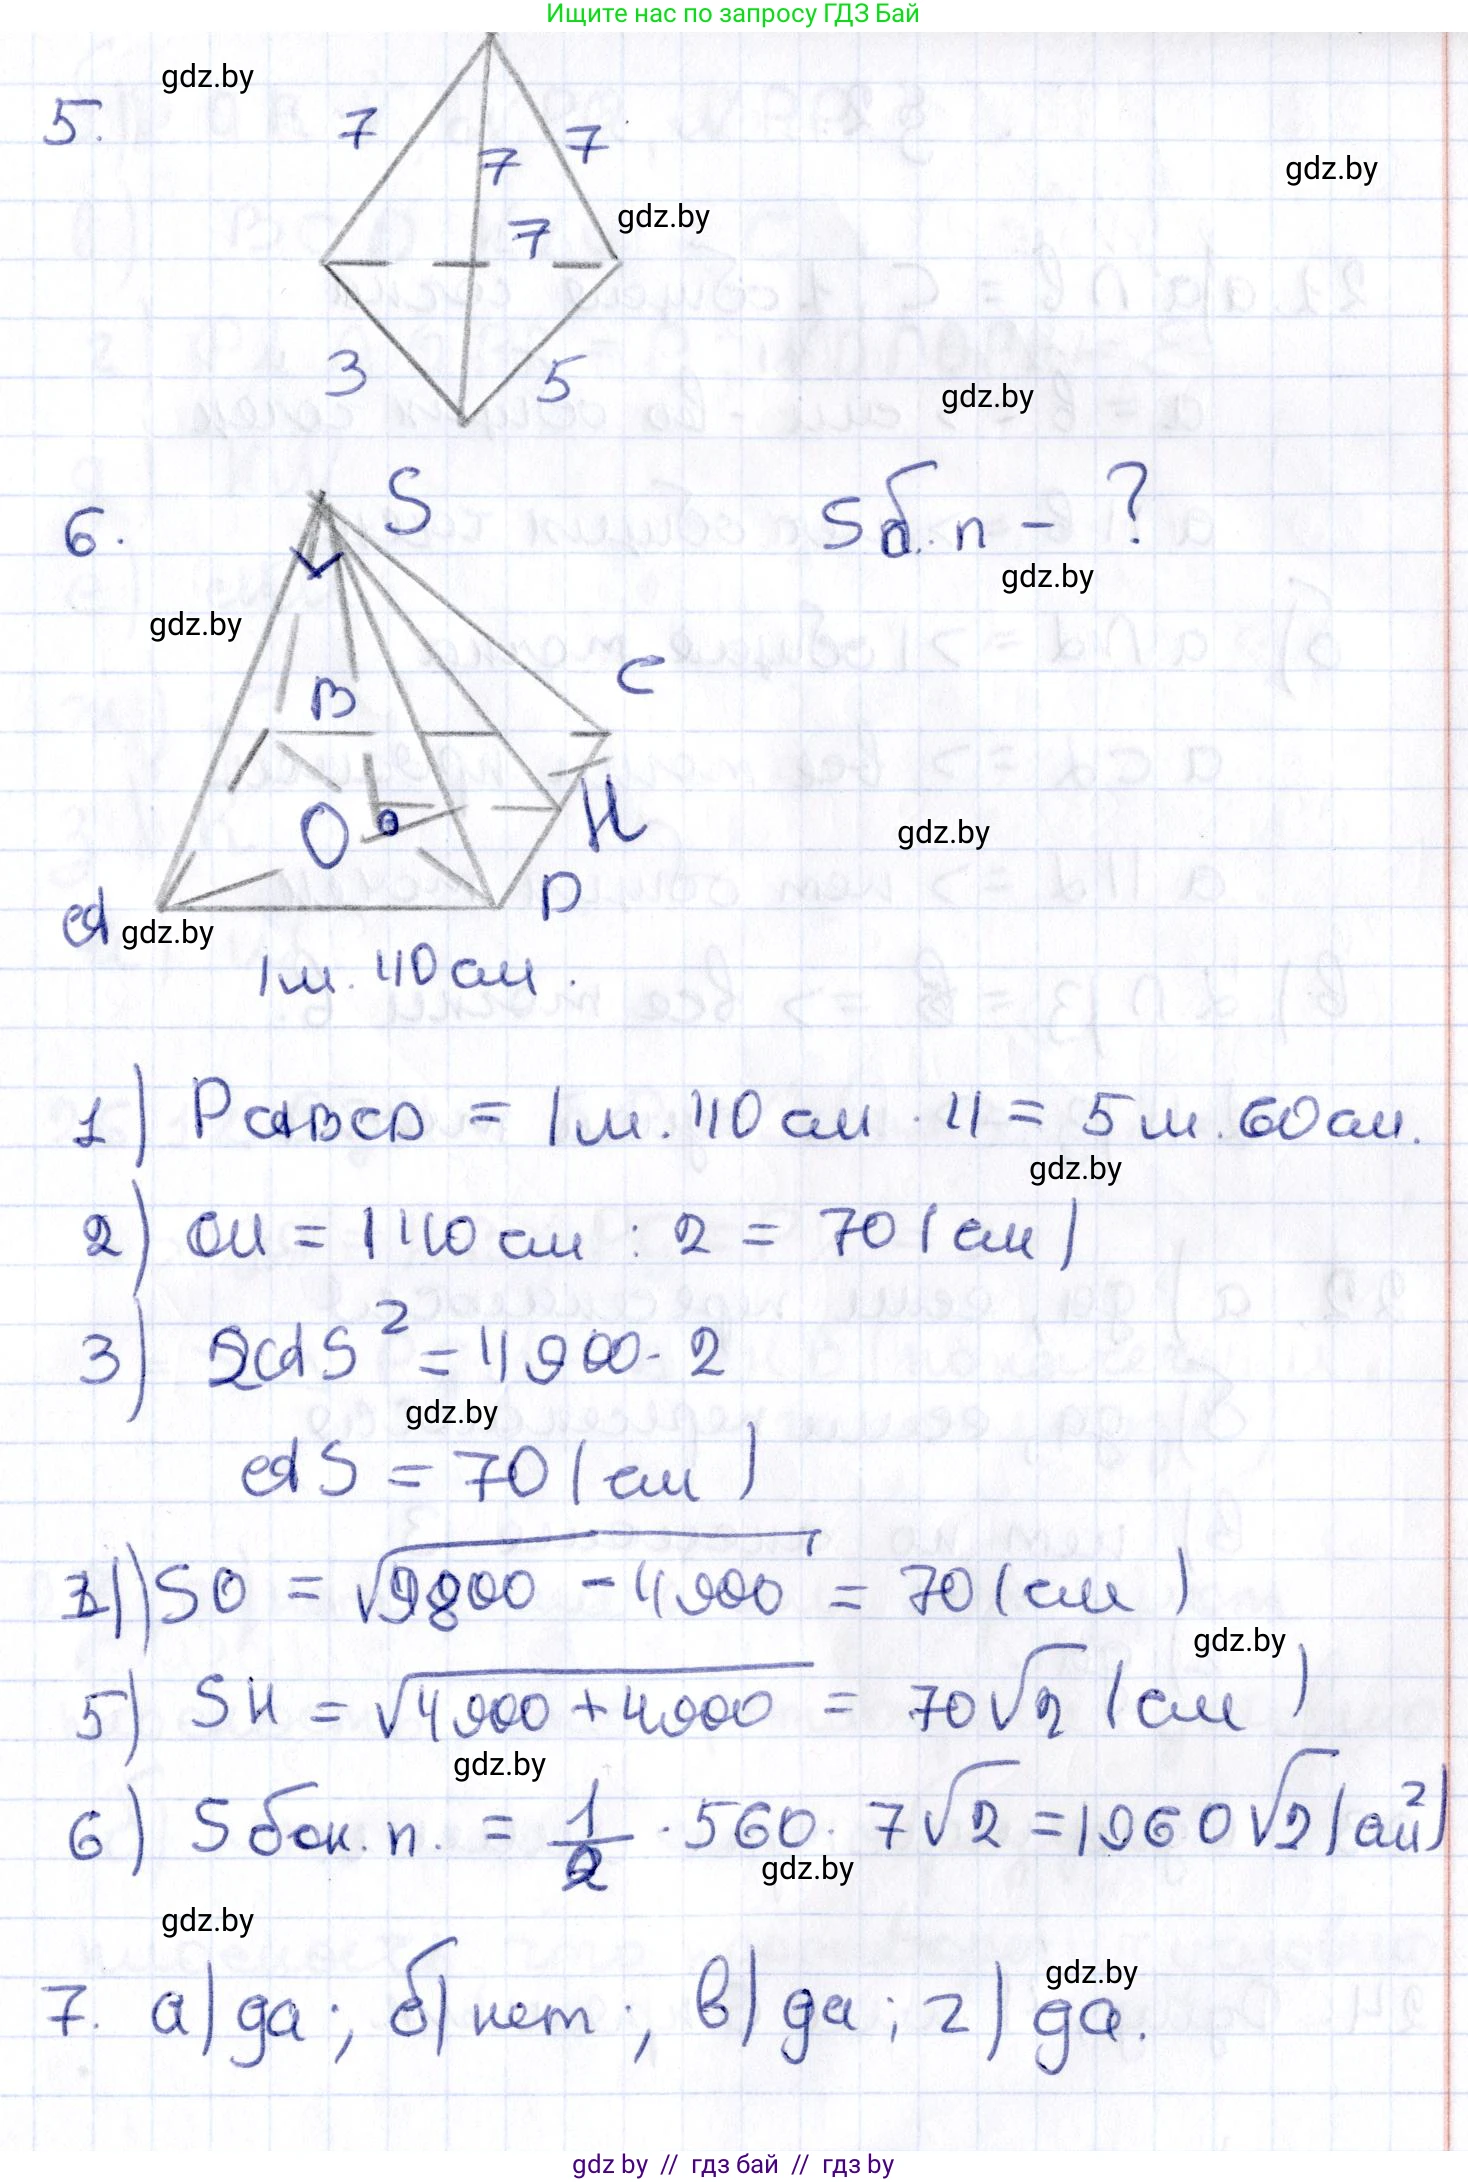 Ищите нас по запросу ГДЗ Бай
gdz.by
5.
7
7
7
gdz.by
gdz.by
7
3
5
gdz.by
6.
S
Sб.п - ?
gdz.by
gdz.by
B
C
O
H
gdz.by
A
D
gdz.by
1м. 40см.
1) PABCD = 1м. 40см · 4 = 5м. 60см.
gdz.by
2) OH = 140см : 2 = 70(см)
3) 2AS² = 4900 · 2
gdz.by
AS = 70(см)
4) SO = √9800 - 4900 = 70(см)
gdz.by
5) SH = √4900 + 4900 = 70√2 (см)
gdz.by
6) Sбок.п. = 1/2 · 560 · 7√2 = 1960√2(см²)
gdz.by
gdz.by
7. а) да; б) нет; в) да; г) да.
gdz.by
gdz by // гдз бай // гдз by